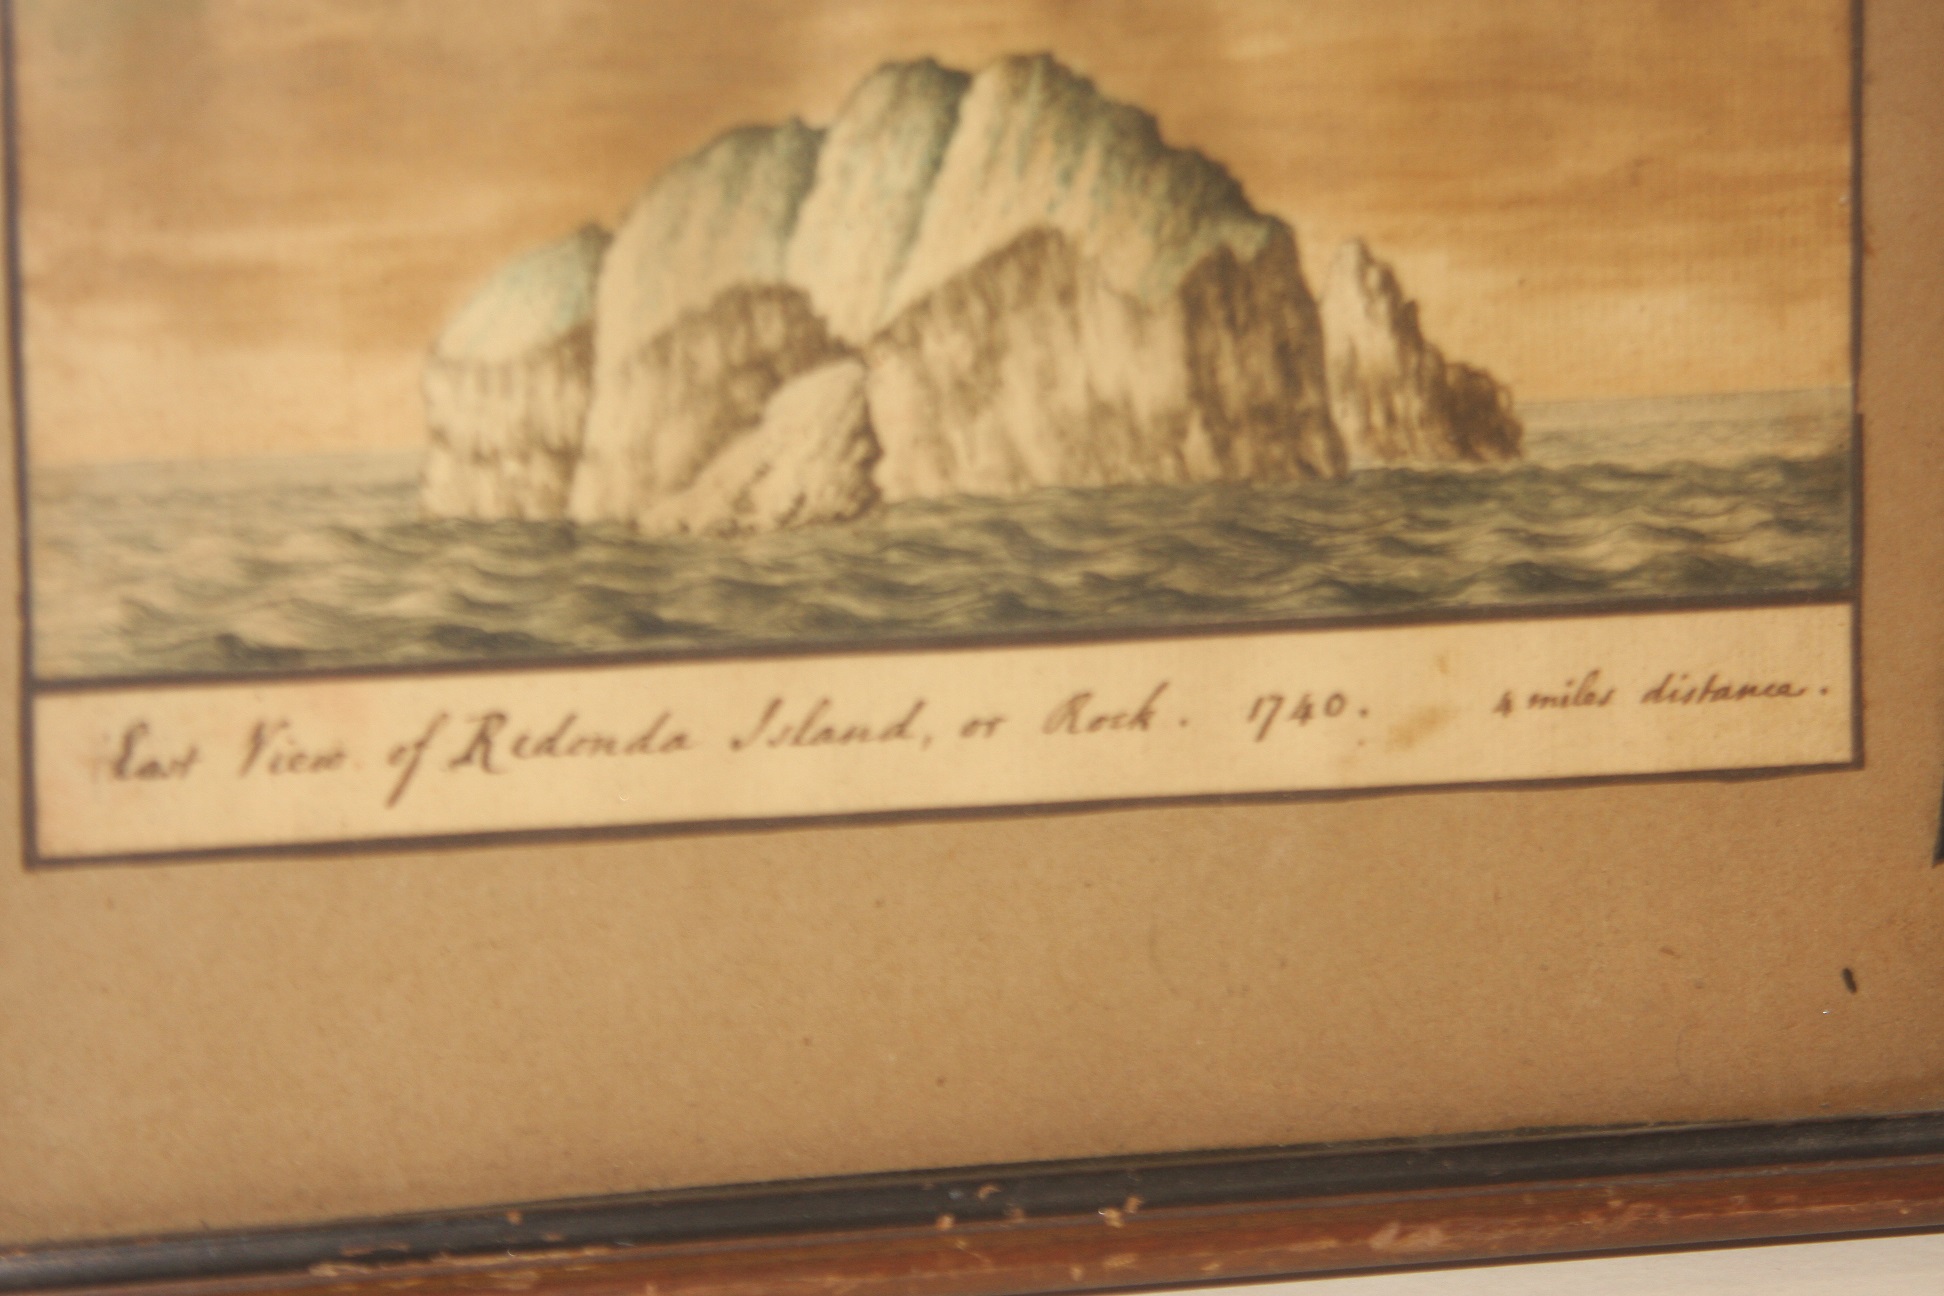 East View of Redonda Island, or Rock. 1740. 4 miles distance.